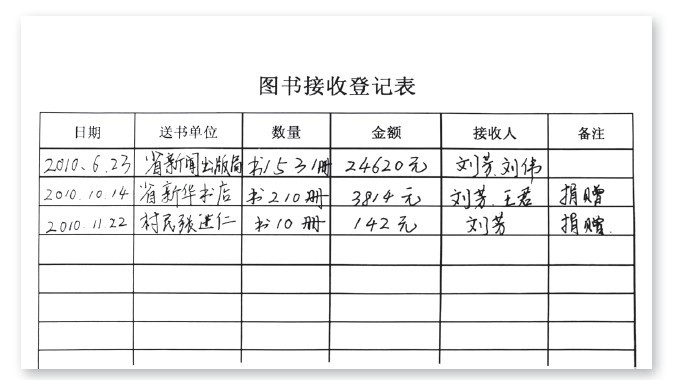 图书接收登记表
日期 送书单位 数量 金额 接收人 备注
2010.6.23 省新闻出版局 书1531册 24620元 刘芳.刘伟
2010.10.14 省新华书店 书210册 3814元 刘芳.王君 捐赠
2010.11.22 村民张进仁 书10册 142元 刘芳 捐赠.